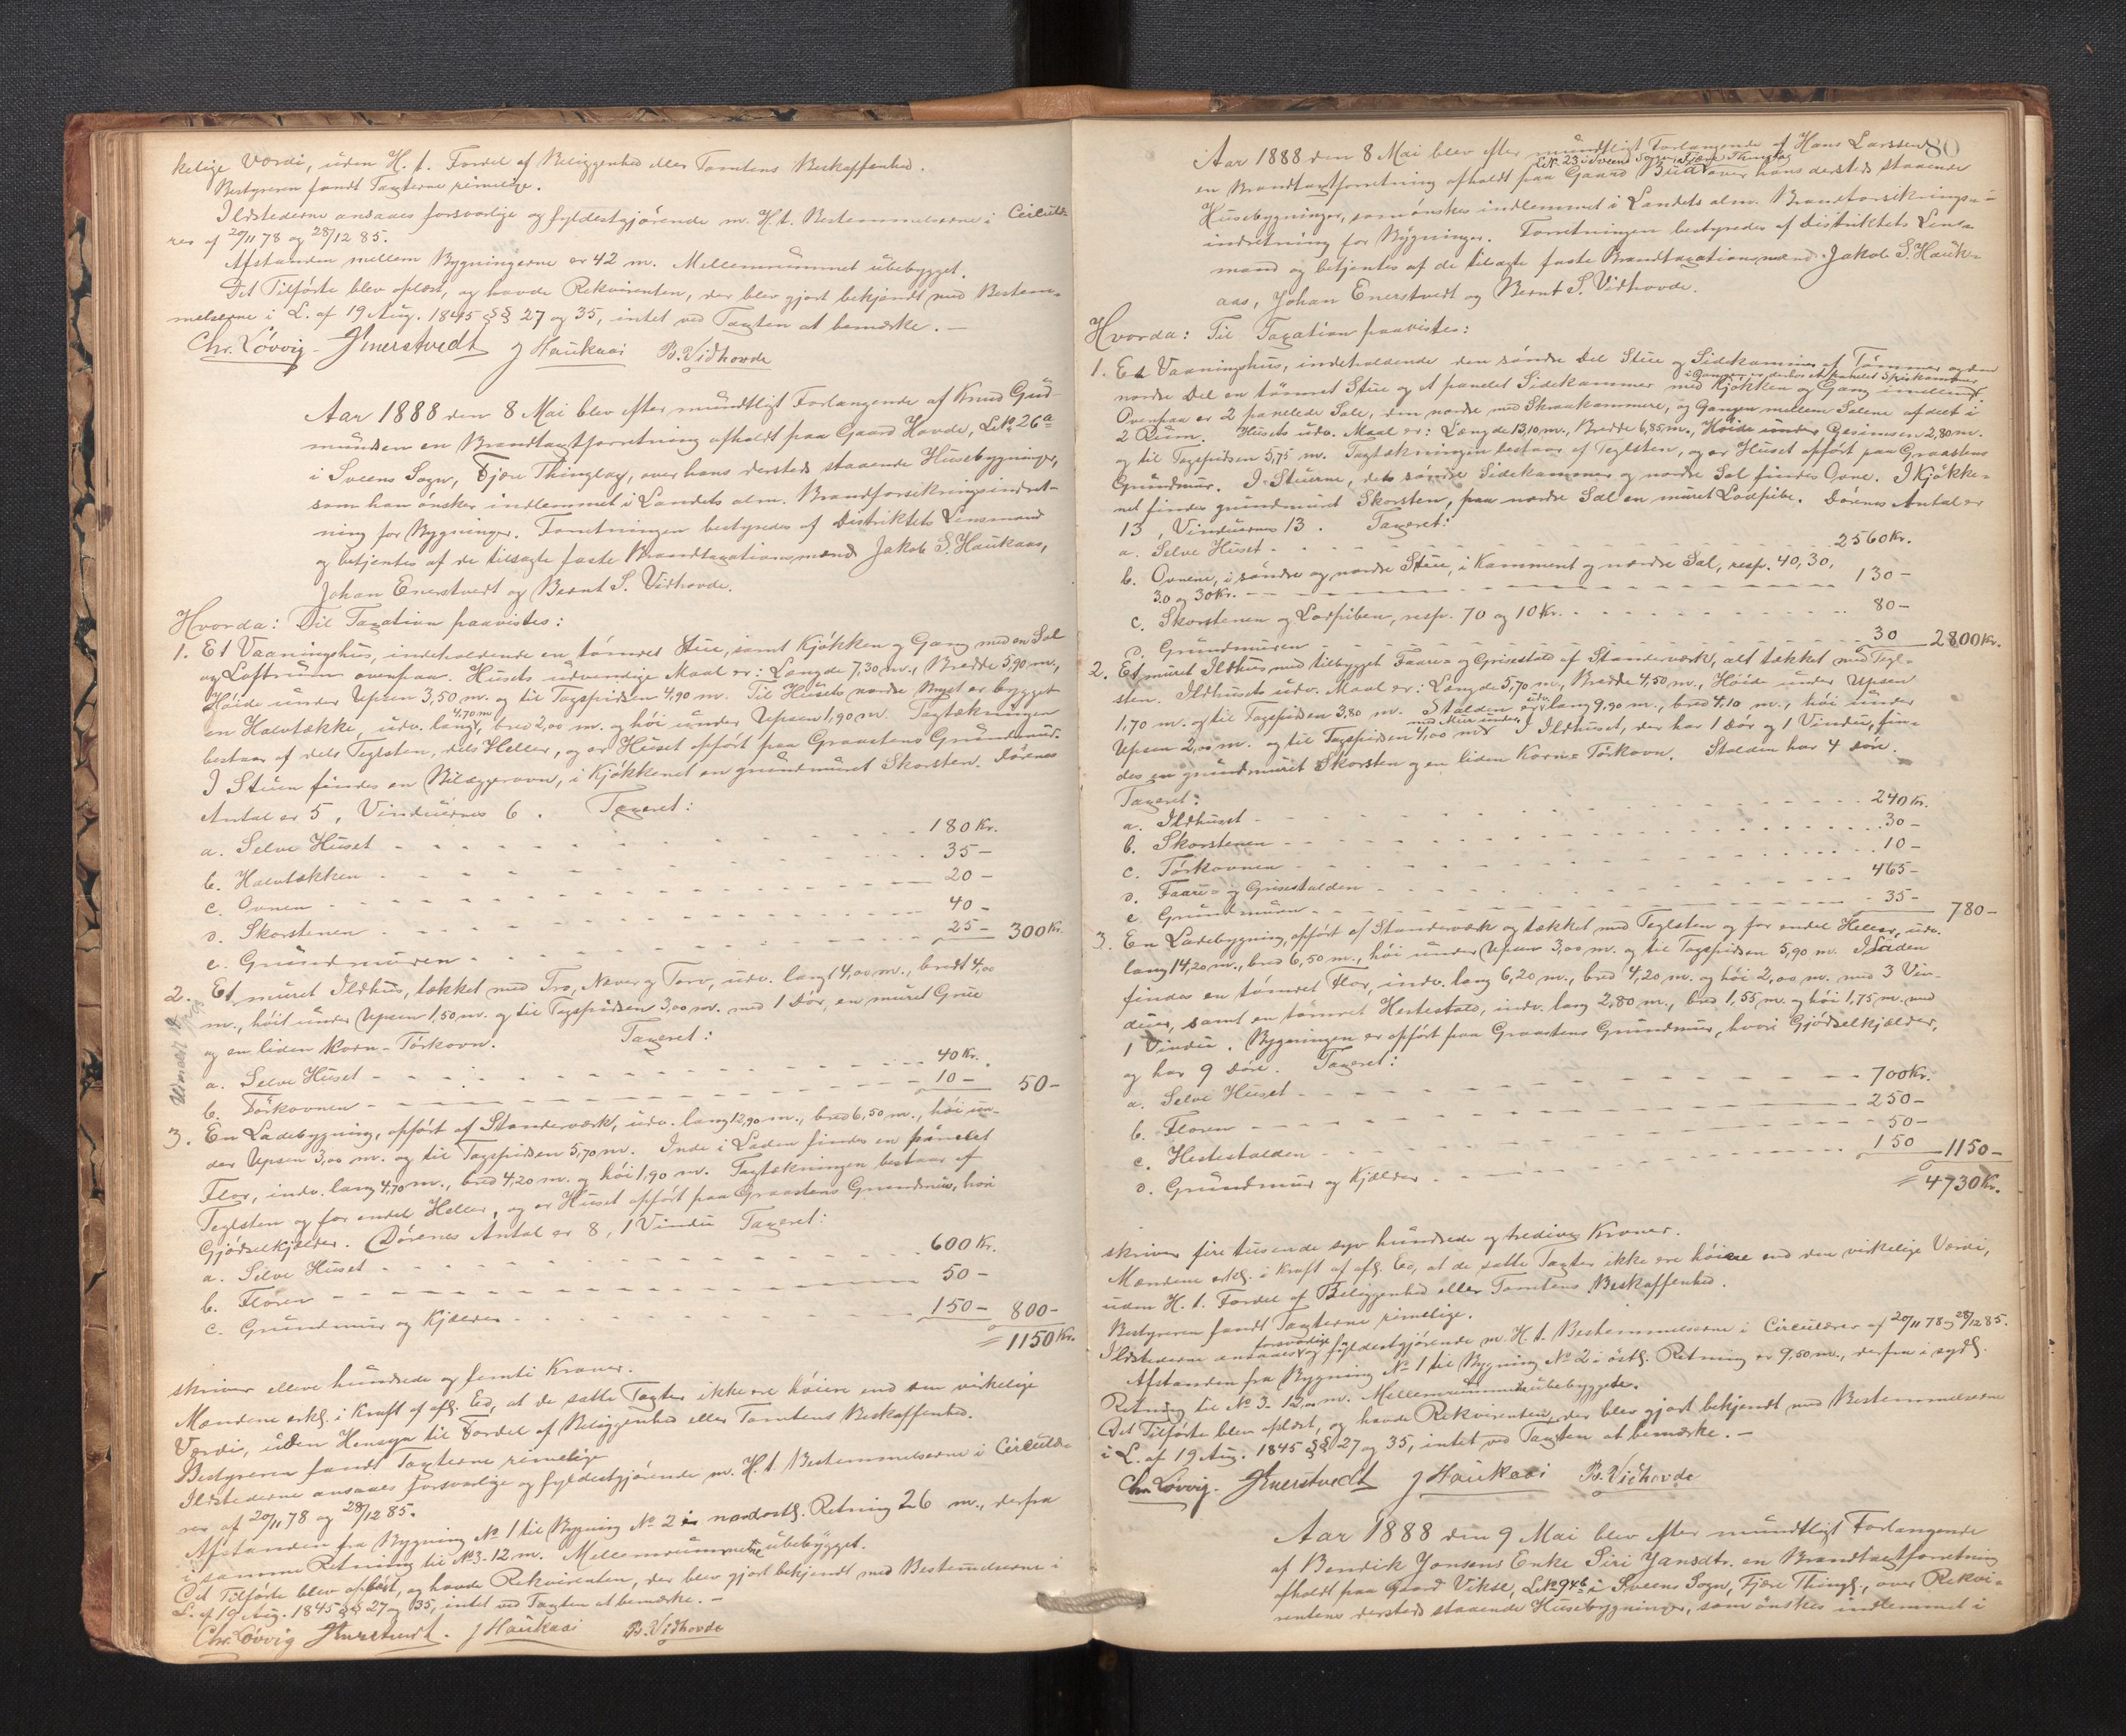 kelige Værdi, uden H. t. Fordel af Beliggenhed eller Tomtens Beskaffenhed.
Bestyreren fandt Taxterne rimelige.
Ildstederne ansaaes forsvarlige og fyldestgjørende m. H. t. Bestemmelserne i Circulæ-
rer af 20/11 78 og 28/12 85.
Afstanden mellem Bygningerne er 42 m. Mellemrummet ubebygget.
Det Tilførte blev oplæst, og havde Rekvirenten, der blev gjort bekjendt med Bestem-
melserne i L. af 19 Aug. 1845 §§ 27 og 35, intet ved Taxten at bemærke. —
Chr. Løvvig JEnerstvedt J Haukaas B. Vidhovde
Aar 1888 den 8 Mai blev efter mundtligt Forlangende af Knud Gud-
mundsen en Brandtaxtforretning afholdt paa Gaard Hovde, LNr. 26a
i Sveens Sogn, Fjære Thinglag, over hans dersteds staaende Husebygninger,
som han ønsker indlemmet i Landets alm. Brandforsikringsindret-
ning for Bygninger. Forretningen bestyredes af Distriktets Lensmand
og betjentes af de tilsagte faste Brandtaxationsmænd Jakob S. Haukaas,
Johan Enerstvedt og Bernt S. Vidhovde.
Hvorda: Til Taxation paavistes:
1. Et Vaaningshus, indeholdende en tømret Stue, samt Kjøkken og Gang med en Sal
og Loftrum ovenpaa. Husets udvendige Maal er: Længde 7,30 m., Bredde 5,90 m.,
Høide under Upsen 3,50 m. og til Tagspidsen 4,90 m. Til Husets nordre Side er bygget
en Halvtække, udv. lang 4,70 m, bred 2,00 m. og høi under Upsen 1,90 m. Tagtækningen
bestaar af dels Teglsten, dels Heller, og er Huset opført paa Graastens Grundmur.
I Stuen findes en Bilæggerovn, i Kjøkkenet en grundmuret Skorsten. Dørenes
Antal er 5, Vinduernes 6. Taxeret:
a. Selve Huset - - - 180 Kr.
b. Halvtækken - - - 35 —
c. Ovnen - - - 20 —
d. Skorstenen - - - 40 —
e. Grundmuren - - - 25 — 300 Kr.
2. Et muret Ildhus, tækket med Tro, Næver og Torv, udv. langt 4,00 m., bredt 4,00
m., høit under Upsen 1,50 m. og til Tagspidsen 3,00 m. med 1 Dør, en muret Grue
og en liden Korn-Tørkovn. Taxeret:
a. Selve Huset - - - 40 Kr.
b. Tørkovnen - - - 10 — 50 —
3. En Ladebygning, opført af Standerværk, udv. lang 12,90 m., bred 6,50 m., høi un-
der Upsen 3,00 m. og til Tagspidsen 5,70 m. Inde i Laden findes en panelet
Flor, indv. lang 4,70 m., bred 4,20 m. og høi 1,90 m. Tagtækningen bestaar af
Teglsten og for endel Heller, og er Huset opført paa Graastens Grundmur, hvori
Gjødselkjælder. Dørenes Antal er 8, 1 Vindu Taxeret:
a. Selve Huset - - - 600 Kr.
b. Floren - - - 50 —
c. Grundmur og Kjælder - - - 150 — 800 —
= 1150 Kr.
skriver elleve hundrede og femti Kroner.
Mændene erkl. i Kraft af afl. Ed, at de satte Taxter ikke ere høiere end den virkelige
Værdi, uden Hensyn til Fordel af Beliggenhed eller Tomtens Beskaffenhed.
Bestyreren fandt Taxterne rimelige
Ildstederne ansaaes forsvarlige og fyldestgjørende m. H. t. Bestemmelserne i Circulæ-
rer af 20/11 78 og 28/12 85.
Afstanden fra Bygning No 1 til Bygning No 2 i nordostl. Retning 26 m., derfra
i samme Retning til No 3 - 12 m. Mellemrummene ubebygget.
Det Tilførte blev oplæst, og havde Rekvirenten, der blev gjort bekjendt med Bestemmelserne i
L. af 19 Aug. 1845 §§ 27 og 35, intet ved Taxten at bemærke. —
Chr. Løvvig JEnerstvedt. J Haukaas B. Vidhovde
80
Aar 1888 den 8 Mai blev efter mundtligt Forlangende af Hans Larssen
en Brandtaxtforretning afholdt paa Gaard Bua LNr. 23 i Sveens Sogn, Fjære Thinglag over hans dersteds staaende
Husebygninger, som ønskes indlemmet i Landets alm. Brandforsikrings-
indretning for Bygninger. Forretningen bestyredes af Distriktets Lens-
mand og betjentes af de tilsagte faste Brandtaxationsmænd Jakob S. Hauk-
aas, Johan Enerstvedt og Bernt S. Vidhovde.
Hvorda: Til Taxation paavistes:
1. Et Vaaningshus, indeholdende den søndre Del Stue og Sidekammer af Tømmer og den
nordre Del en tømret Stue og et panelet Sidekammer med Kjøkken og Gang imellem. i Gangen er derhos et panelet Spiskammer
Ovenpaa er 2 panelede Sale, den nordre med Skraakammere, og Gangen mellem Salene afdelt i
2 Rum. Husets udv. Maal er: Længde 13,10 m., Bredde 6,85 m., Høide under Gesimsen 2,80 m.
og til Tagspidsen 5,75 m. Tagtækningen bestaar af Teglsten, og er Huset opført paa Graastens
Grundmur. I Stuerne, det søndre Sidekammer og nordre Sal findes Ovne. I Kjøkke-
net findes grundmuret Skorsten, paa nordre Sal en muret Lodpibe. Dørenes Antal er
13, Vinduernes 13. Taxeret:
a. Selve Huset - - - 2560 Kr.
b. Ovnene, i søndre og nordre Stue, i Kammeret og nordre Sal, resp. 40, 30,
30 og 30 Kr. - - - 130 —
c. Skorstenen og Lodpiben, resp. 70 og 10 Kr. - - - 80 —
d. Grundmuren - - - 30 2800 Kr.
2. Et muret Ildhus, med tilbygget Faare- og Grisestald af Standerværk, alt tækket med Tegl-
sten. Ildhusets udv. Maal er: Længde 5,70 m., Bredde 4,50 m., Høide under Upsen
1,70 m. og til Tagspidsen 3,80 m. Stalden er udv. lang 9,90 m., bred 4,10 m., høi under
Upsen 2,00 m. og til Tagspidsen 4,00 m. med Mur under. I Ildhuset, der har 1 Dør og 1 Vindu, fin-
des en grundmuret Skorsten og en liden Korn-Tørkovn. Stalden har 4 Døre.
Taxeret:
a. Ildhuset - - - 240 Kr.
b. Skorstenen - - - 30 —
c. Tørkovnen - - - 10 —
d. Faare- og Grisestalden - - - 465 —
e. Grundmuren - - - 35 — 780 —
3. En Ladebygning, opført af Standerværk og tækket med Teglsten og for endel Heller, udv.
lang 14,20 m., bred 6,50 m., høi under Upsen 3,00 m. og til Tagspidsen 5,90 m. I Laden
findes en tømret Flor, indv. lang 6,20 m., bred 4,20 m. og høi 2,00 m. med 3 Vin-
duer, samt en tømret Hestestald, indv. lang 2,80 m., bred 1,55 m. og høi 1,75 m. med
1 Vindu. Bygningen er opført paa Graastens Grundmur, hvori Gjødselkjælder,
og har 9 Døre. Taxeret:
a. Selve Huset - - - 700 Kr.
b. Floren - - - 250 —
c. Hestestalden - - - 50 —
d. Grundmur og Kjælder - - - 150 1150 —
= 4730 Kr.
skriver fire tusende syv hundrede og tredive Kroner.
Mændene erkl. i Kraft af afl. Ed, at de satte Taxter ikke ere høiere end den virkelige Værdi,
uden H. t. Fordel af Beliggenhed eller Tomtens Beskaffenhed.
Bestyreren fandt Taxterne rimelige.
Ildstederne ansaaes forsvarlige og fyldestgjørende m. H. t. Bestemmelserne i Circulærer af 20/11 78 og 28/12 85.
Afstanden fra Bygning No 1 til Bygning No 2 i østl. Retning er 9,50 m., derfra i sydl.
Retning til No 3 - 12,00 m. Mellemrummene ubebyggede.
Det Tilførte blev oplæst, og havde Rekvirenten, der blev gjort bekjendt med Bestemmelserne
i L. af 19 Aug. 1845 §§ 27 og 35, intet ved Taxten at bemærke. —
Chr. Løvvig. JEnerstvedt J Haukaas B. Vidhovde
Aar 1888 den 9 Mai blev efter mundtligt Forlangende
af Bendik Jonsens Enke Siri Jansdtr. en Brandtaxtforretning
afholdt paa Gaard Vikse, LNo 94b i Sveens Sogn, Fjære Thingl., over Rekvi-
rentens dersteds staaende Husebygninger, som ønskes indlemmet i